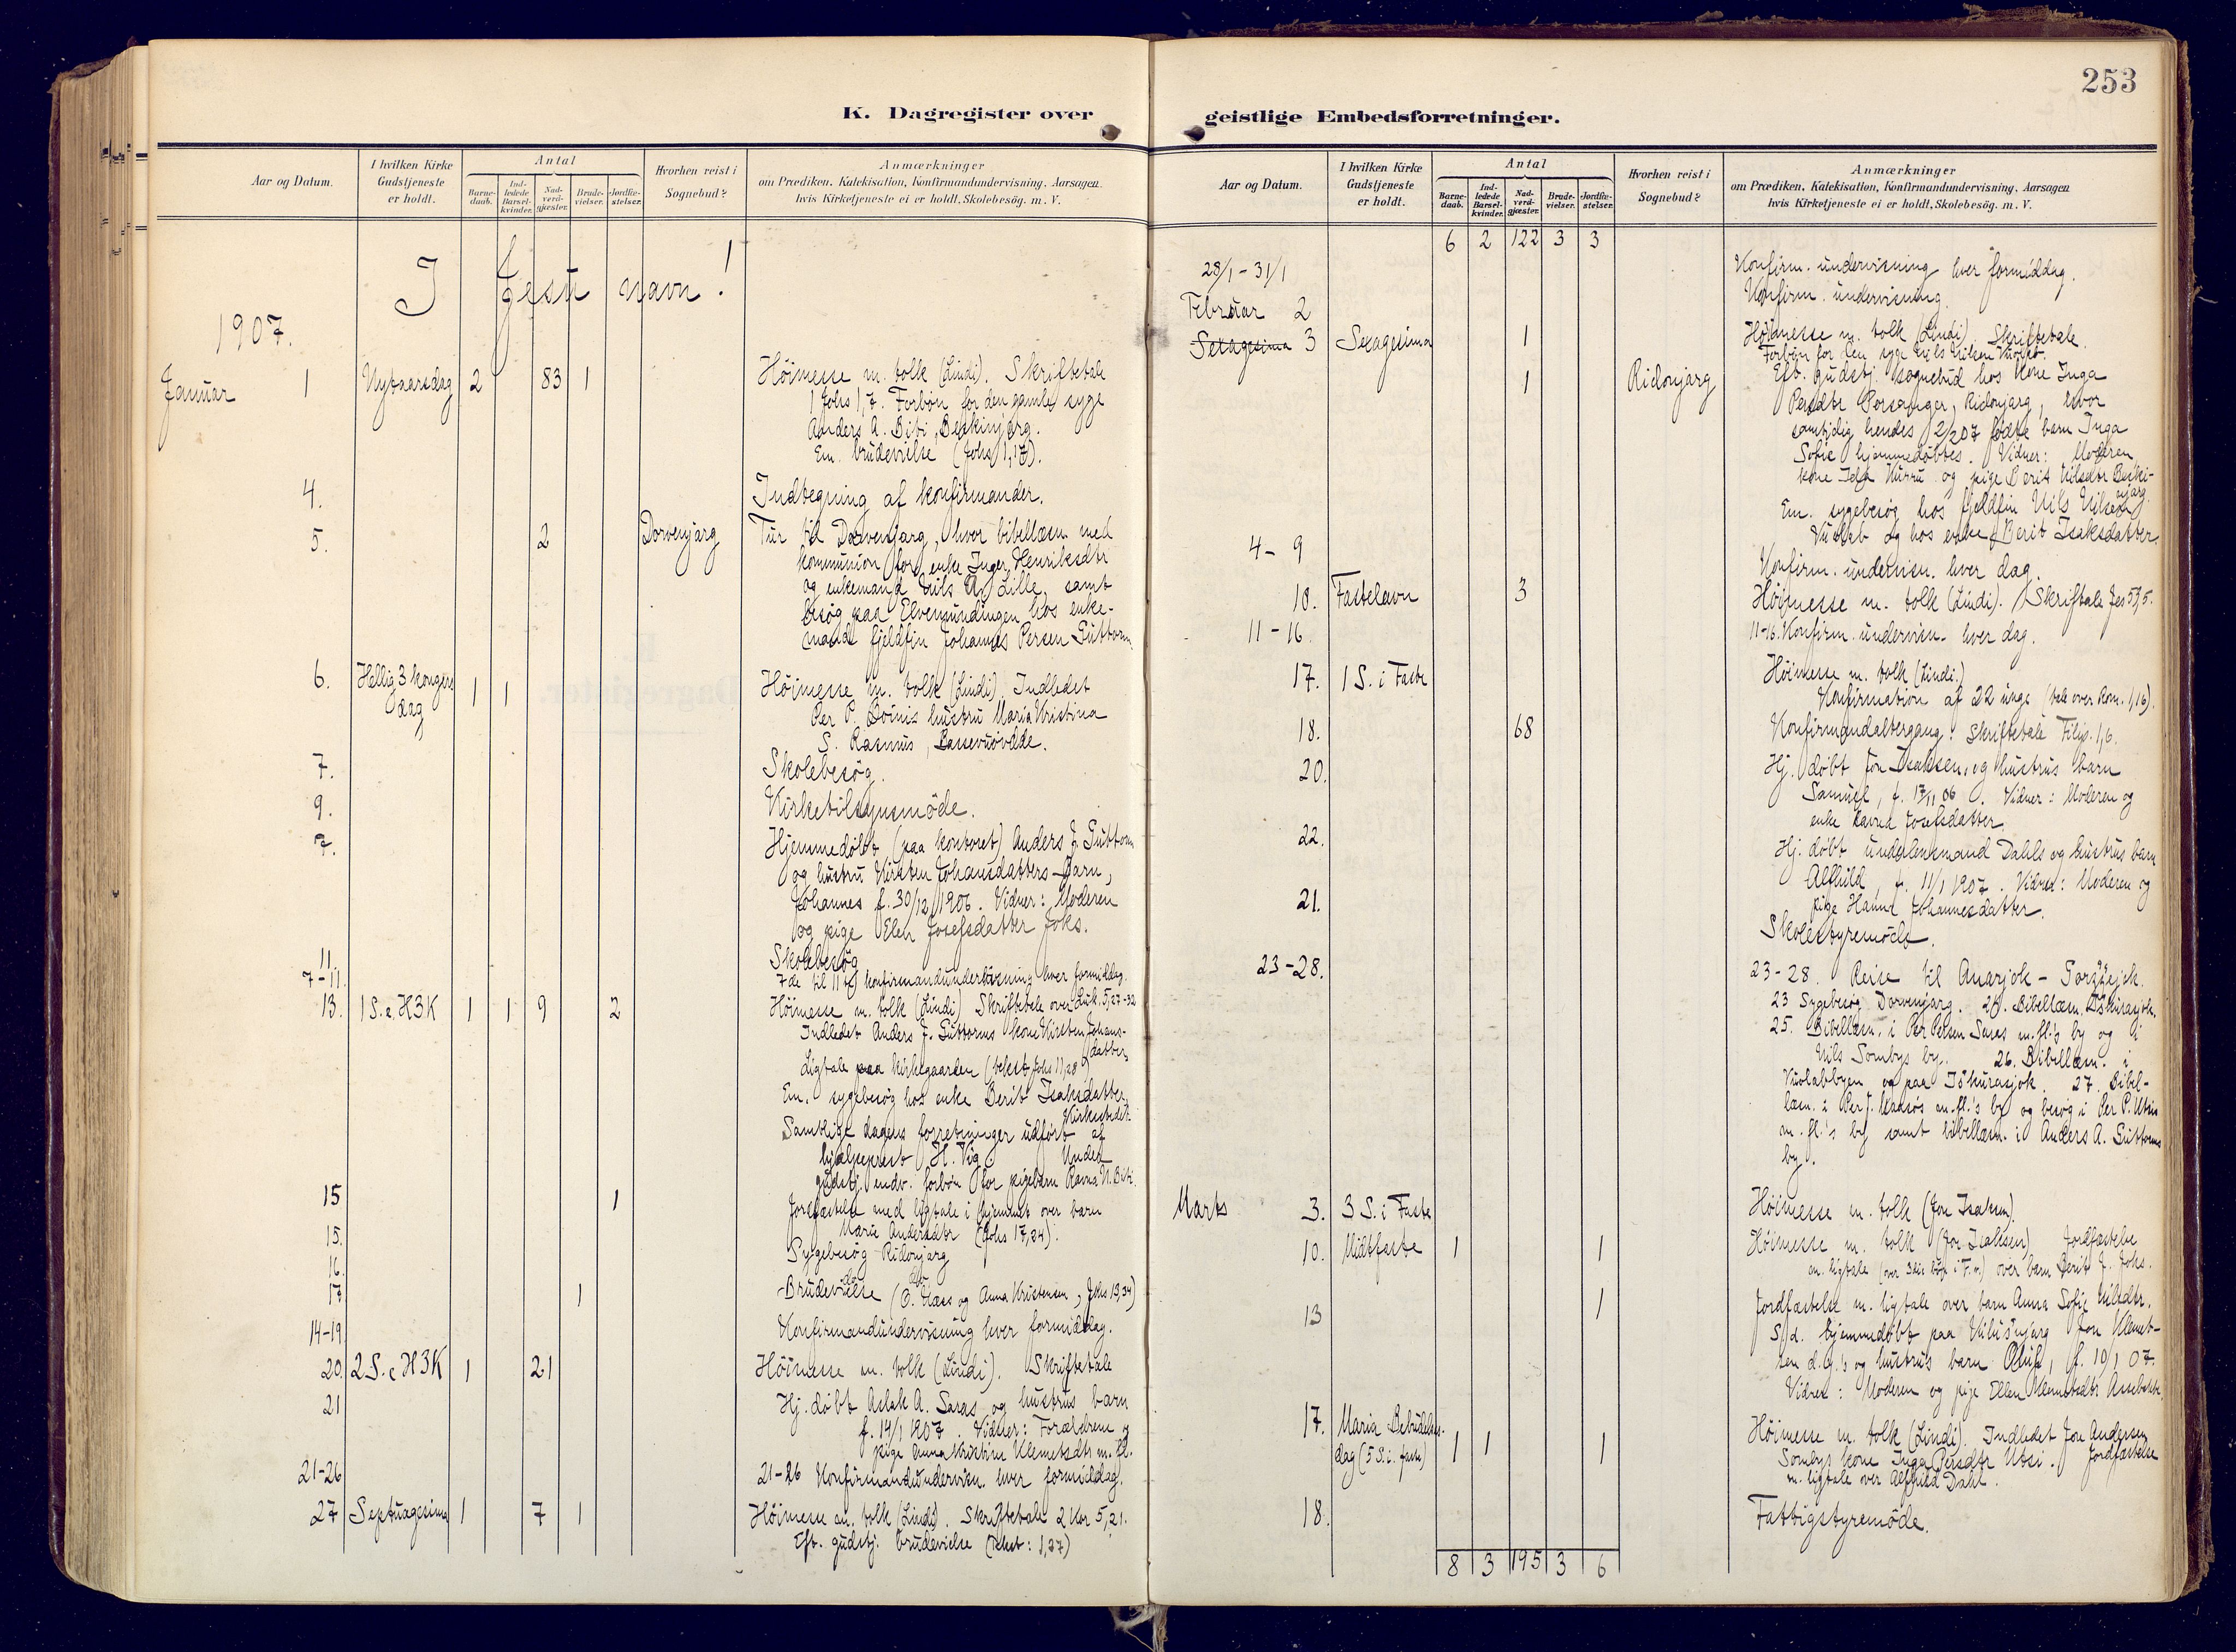 253
K. Dagregister over
Aar og Datum.
I hvilken Kirke
Gudstjeneste
er holdt.
Antal
Barne-
daab.
Ind-
ledede
Barsel-
kvinder.
Nad-
verd-
gjæster.
Brude-
vielser.
Jordfæ-
stelser.
Hvorhen reist i
Sognebud?
Anmærkninger
om Prædiken, Katekisation, Konfirmandundervisning, Aarsagen
hvis Kirketjeneste ei er holdt, Skolebesög. m. V.
I Jesu navn!
1907.
Januar 1 Nytaarsdag 2 83 1 Höimesse m. tolk (Lindi). Skriftetale
1 Johs 1,7. Forbön for den gamle syge
Anders A. Biti, Beskinjarg.
Em. brudevielse (Johs 1,17).
4. Indtegning af konfirmander.
5. 2 Dorvenjarg Tur til Dorvenjarg, hvor bibellæsn. med
kommunion for enke Inger Henriksdtr
og enkemand Nils A. Lille, samt
besög paa Elvemundingen hos enke-
mand fjeldfin Johannes Persen Guttorm.
6. Hellig 3 kongers
dag 1 1 Höimesse m. tolk (Lindi). Indledet
Per P. hustru Maria Kristina
S. Rasmus,
7. Skolebesög.
9. Kirketilsynsmöde.
7. Hjemmedöbt (paa kontoret) Anders J. Guttorm
og hustru Kirsten Johansdatters barn,
Johannes f. 30/12 1906. Vidner: Moderen
og pige Elen Josefsdatter Joks.
11. Skolebesög
7-11. 7de til 11te konfirmandundervisning hver formiddag.
13. 1 S. e. H3K 1 1 9 2 Höimesse m. tolk (Lindi) Skriftetale over Luk. 5,27-32
Indledet Anders J. Guttorms kone Kirsten Johans-
datter.
Ligtale paa kirkegaarden (tekst Johs 11,28)
Em. sygebesög hos enke Berit Isaksdatter,
Kirkestedet.
Samtlige dagens forretninger udfört af
hjælpeprest H. Vig. Under
gudstj. endv. forbön for pigebarn Ravna N. Biti.
15 1 Jordfæstelse med ligtale i hjemmet over barn
Marie Andersdtr (Johs 17,24).
15. Sygebesög Ridonjarg
16. do do
17. 1 Brudevielse (O. Næss og Anna Kristensen, Johs 19,34)
14-19 Konfirmandundervisning hver formiddag.
20. 2 S. e H3K 1 21 Höimesse m. tolk (Lindi). Skriftetale
21 Hj. döbt Aslak A. Saras og hustrus barn
f. 14/1 1907. Vidner: Forældrene og
pige Anna Kristine Klemetsdtr m. fl.
21-26 21-26 Konfirmandundervisn. hver formiddag.
27 Septuagesima 1 7 1 Höimesse m. tolk (Lindi). Skriftetale 2 Kor 5,21.
Eft. gudstj. brudevielse (tekst: 1,27)
geistlige Embedsforretninger.
Aar og Datum.
I hvilken Kirke
Gudstjeneste
er holdt.
Antal
Barne-
daab.
Ind-
ledede
Barsel-
kvinder.
Nad-
verd-
gjæster.
Brude-
vielser.
Jordfæ-
stelser.
Hvorhen reist i
Sognebud?
Anmærkninger
om Prædiken, Katekisation, Konfirmandundervisning, Aarsagen
hvis Kirketjeneste ei er holdt, Skolebesög. m. V.
6 2 122 3 3
28/1-31/1 Konfirm. undervisning hver formiddag.
Februar 2 Konfirm. undervisning.
Sexagesima 3 Sexagesima 1 Höimesse m. tolk (Lindi). Skriftetale.
Forbön for den syge Nils Nilsen
1 Ridonjarg Eft. gudstj. sognebud hos kone Inga
Persdtr Porsanger, Ridonjarg, hvor
samtidig hendes 2/2 07 födte barn Inga
Sofie hjemmedöbtes. Vidner: Moderen
kone Ida Kurru og pige Berit Nilsdtr Beski-
njarg.
Em. sygebesög hos fjeldfin Nils Nilsen
og hos enke Berit Isaksdatter.
4-9 Konfirm. undervisn. hver dag.
10. Fastelavn 3 Höimesse m. tolk (Lindi). Skriftale Jes 57,5.
11-16. 11-16. Konfirm. undervisn. hver dag.
17. 1 S. i Faste Höimesse m. tolk (Lindi.)
Konfirmation af 22 unge (tale over Rom. 1,16).
18. 68 Konfirmandaltergang: Skriftetale Filip. 1,6.
20. Hj. döbt Jon Isaksen og hustrus barn
Samuel, f. 17/11 06. Vidner: Moderen og
enke Ravna Josefsdatter.
22. Hj. döbt underlensmand Dahls og hustrus barn
Alfhild, f. 11/1 1907. Vidner: Moderen og
pige Hanna Johannesdatter.
21. Skolestyremöde.
23-28. 23-28. Reise til Anarjok - Gorzzejok.
23 Sygebesög Dorvenjarg. 24. Bibellæsn. Iskurasjok.
25. Bibellæsn. i Per Persen Saras m.fl.'s by og i
Nils Sombys by. 26. Bibellæsn. i
Vuolabbyen og paa Iskurasjok. 27. Bibel-
læsn. i Per J. m.fl.'s by og besög i Per P. Utsis
m. fl.'s by samt bibellæsn. i Anders A. Guttorms
by.
Marts 3. 3 S. i Faste Höimesse m. tolk (Jon Isaksen).
10. Midtfaste 1 1 Höimesse m. tolk (Jon Isaksen) Jordfæstelse
m. ligtale over barn Berit J. Joks.
13 1 Jordfæstelse m. ligtale over barn Anna Sofie Nilsdtr.
S. d. hjemmedöbt paa Jon Klemet-
sen d. y.'s og hustrus barn f. 10/1 07.
Vidner: Moderen og pige Ellen Klemetsdtr Assebakte.
17. Maria Bebudelses-
dag (5 S. i. faste) 1 1 1 Höimesse m. tolk (Lindi). Indledet Jon Andersen
Sombys kone Inga Persdtr Utsi. Jordfæstelse
m. ligtale over Alfhild Dahl.
18. Fattigstyremöde.
8 3 195 3 6